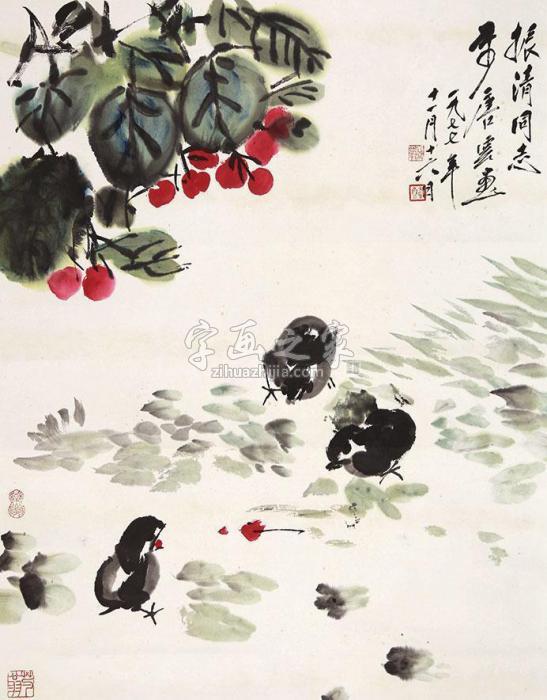 振清同志
唐雲畫
一九七七年
十一月十六日
字画之家
zihuazhijia.com